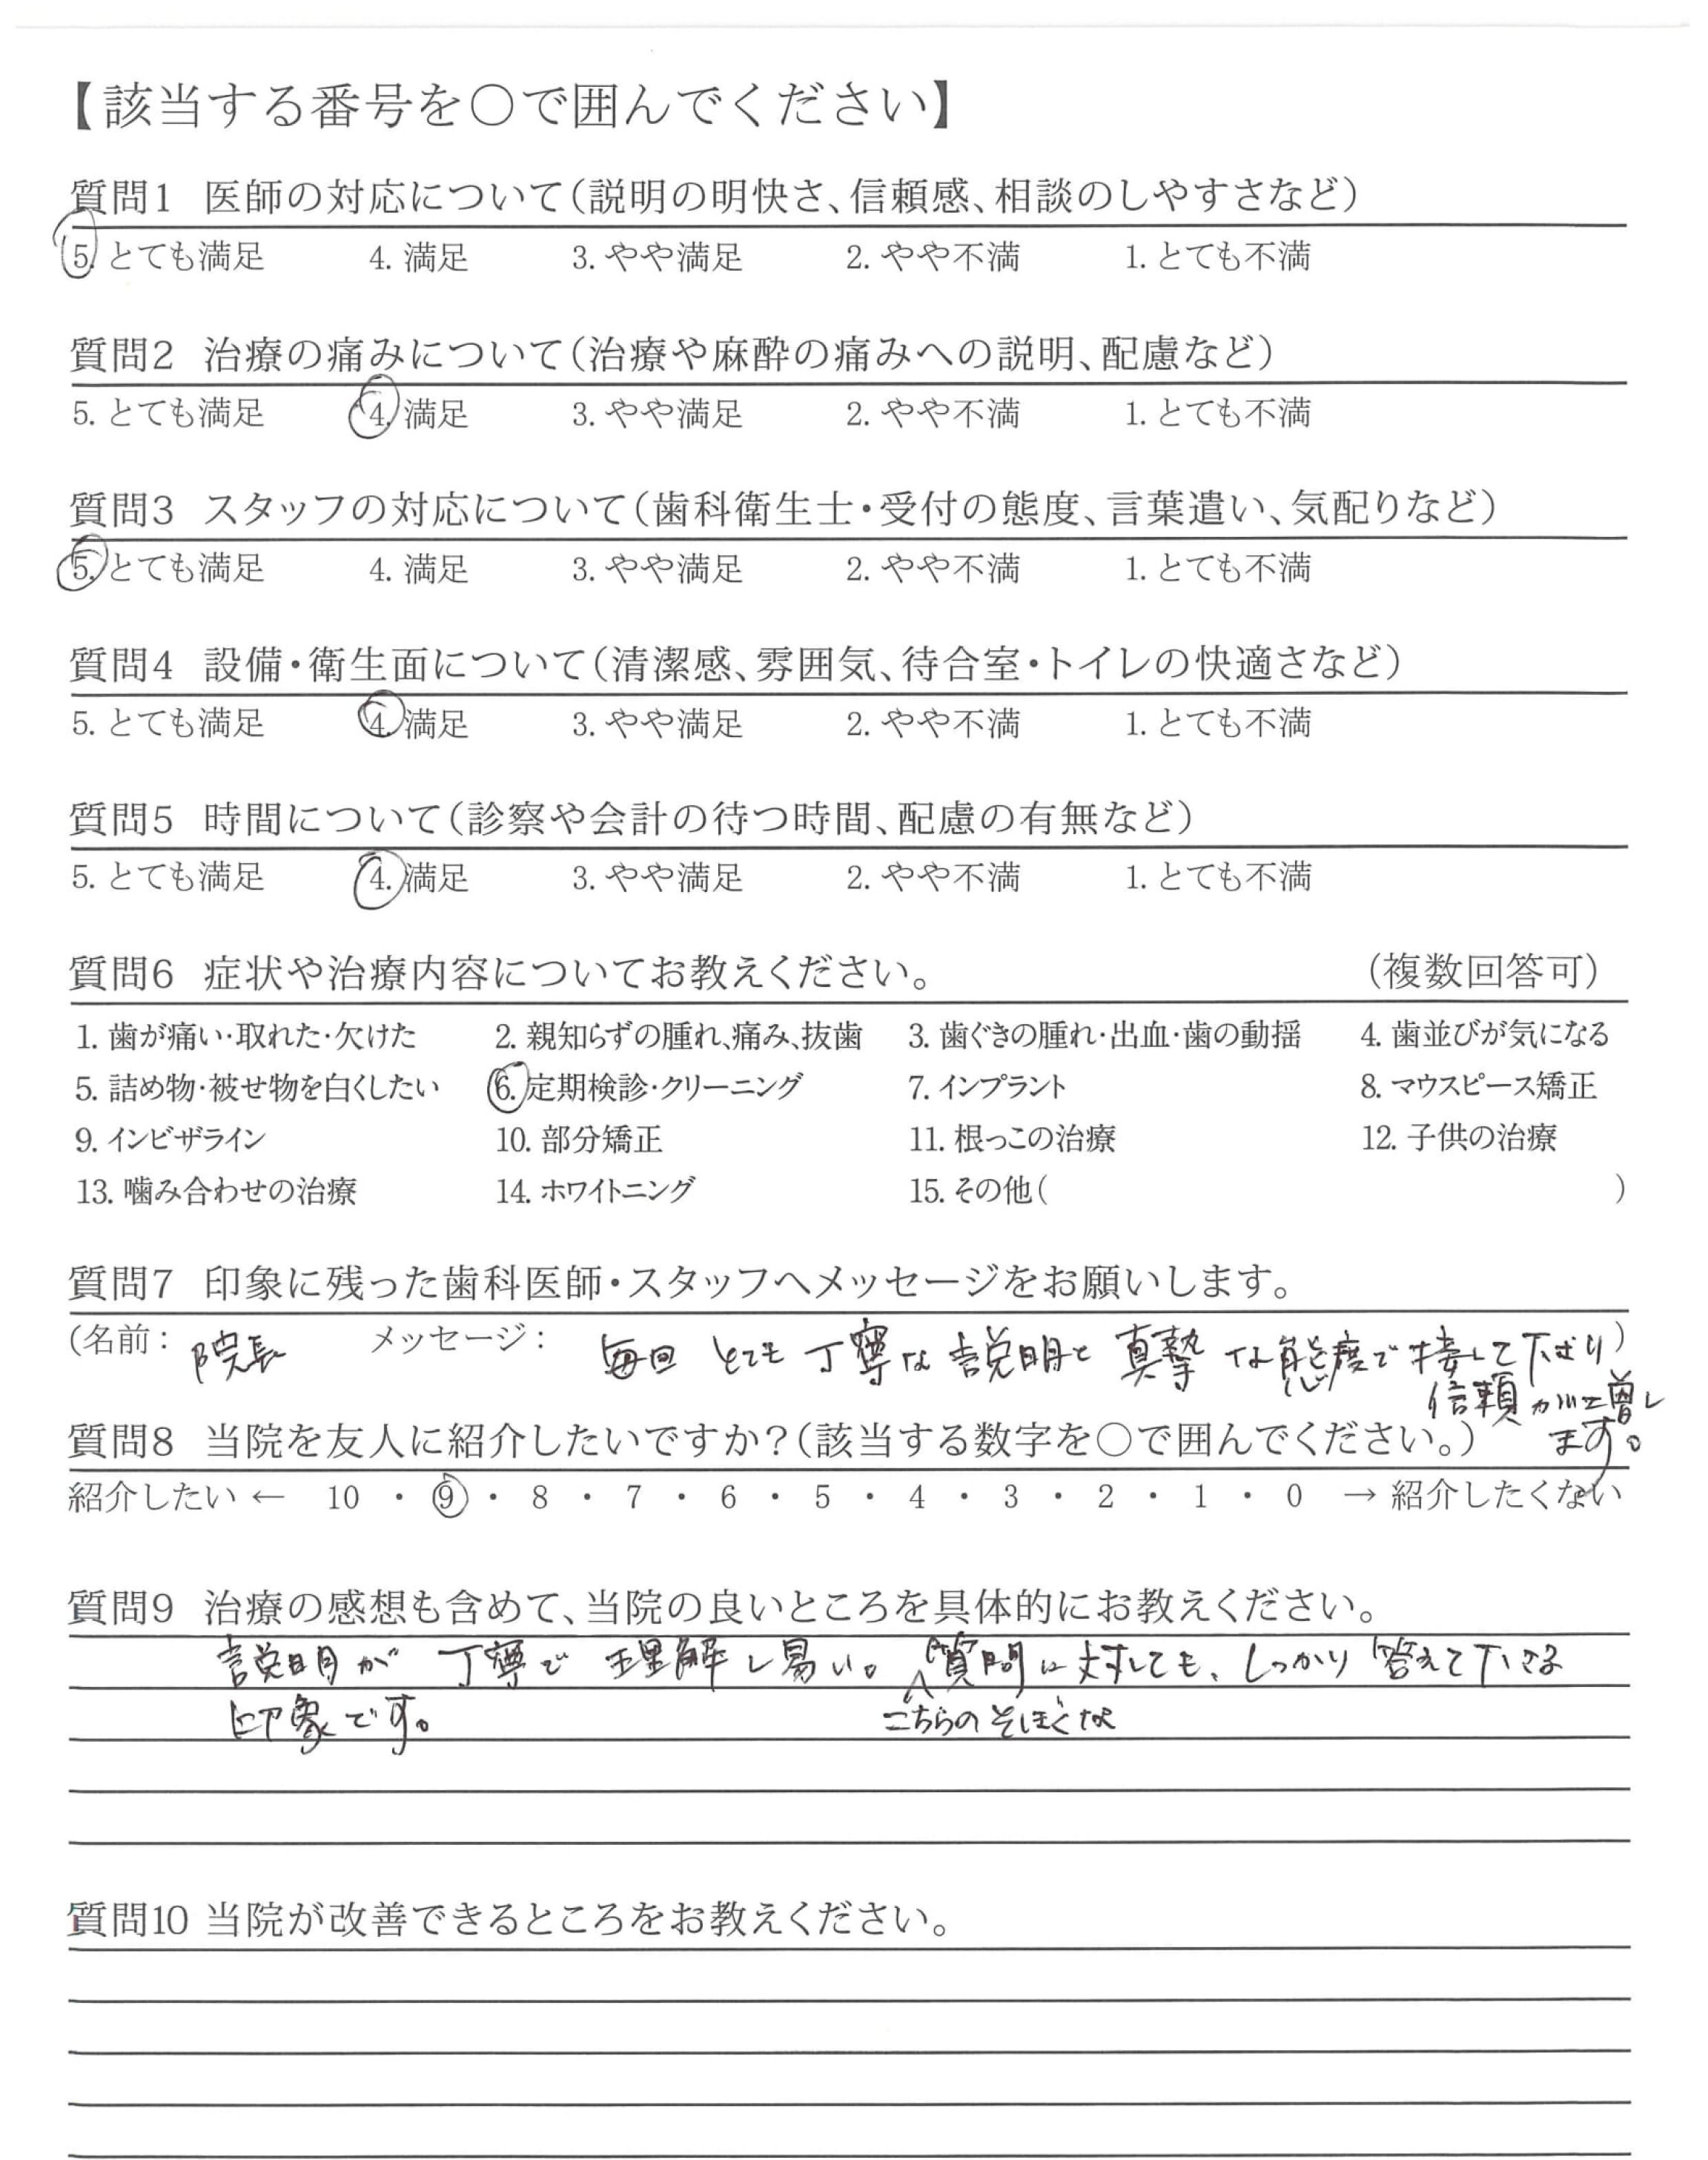 【該当する番号を○で囲んでください】
質問1 医師の対応について(説明の明快さ、信頼感、相談のしやすさなど)
5. とても満足 4. 満足 3. やや満足 2. やや不満 1. とても不満
質問2 治療の痛みについて(治療や麻酔の痛みへの説明、配慮など)
5. とても満足 4. 満足 3. やや満足 2. やや不満 1. とても不満
質問3 スタッフの対応について(歯科衛生士・受付の態度、言葉遣い、気配りなど)
5. とても満足 4. 満足 3. やや満足 2. やや不満 1. とても不満
質問4 設備・衛生面について(清潔感、雰囲気、待合室・トイレの快適さなど)
5. とても満足 4. 満足 3. やや満足 2. やや不満 1. とても不満
質問5 時間について(診察や会計の待つ時間、配慮の有無など)
5. とても満足 4. 満足 3. やや満足 2. やや不満 1. とても不満
質問6 症状や治療内容についてお教えください。 (複数回答可)
1. 歯が痛い・取れた・欠けた 2. 親知らずの腫れ、痛み、抜歯 3. 歯ぐきの腫れ・出血・歯の動揺 4. 歯並びが気になる
5. 詰め物・被せ物を白くしたい 6. 定期検診・クリーニング 7. インプラント 8. マウスピース矯正
9. インビザライン 10. 部分矯正 11. 根っこの治療 12. 子供の治療
13. 噛み合わせの治療 14. ホワイトニング 15. その他( )
質問7 印象に残った歯科医師・スタッフへメッセージをお願いします。
(名前: 院長 メッセージ: 毎回 とても丁寧な説明と真摯な態度で接して下さり)
信頼が増し
ます。
質問8 当院を友人に紹介したいですか?(該当する数字を○で囲んでください。)
紹介したい ← 10 ・ 9 ・ 8 ・ 7 ・ 6 ・ 5 ・ 4 ・ 3 ・ 2 ・ 1 ・ 0 → 紹介したくない
質問9 治療の感想も含めて、当院の良いところを具体的にお教えください。
説明が丁寧で理解し易い。質問に対しても、しっかり答えて下さる
印象です。 こちらのそぼくな
質問10 当院が改善できるところをお教えください。